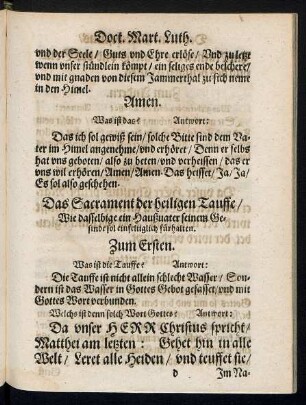 Doct. Mart. Luth.
vnd der Seele / Guts vnd Ehre erlöse / Vnd zu letzt
wenn vnser stündlein kömpt / ein seliges ende beschere /
vnd mit gnaden von diesem Jammerthal zu sich neme
in den Himel.
Amen.
Was ist das? Antwort:
Das ich sol gewiß sein / solche Bitte sind dem Va-
ter im Himel angenehme / vnd erhöret / Denn er selbs
hat vns geboten / also zu beten / vnd verheissen / das er
vns wil erhören / Amen / Amen. Das heisset / Ja / Ja /
Es sol also geschehen.
Das Sacrament der heiligen Tauffe /
Wie dasselbige ein Haußuater seinem Ge-
sinde sol einfeltiglich fürhalten.
Zum Ersten.
Was ist die Tauffe? Antwort:
Die Tauffe ist nicht allein schlecht Wasser / Son-
dern ist das Wasser in Gottes Gebot gefasset / vnd mit
Gottes Wort verbunden.
Welchs ist denn solch Wort Gottes? Antwort:
Da vnser HERR Christus spricht /
Matthei am letzten: Gehet hin in alle
Welt / Leret alle Heiden / vnd teuffet sie /
d Im Na-